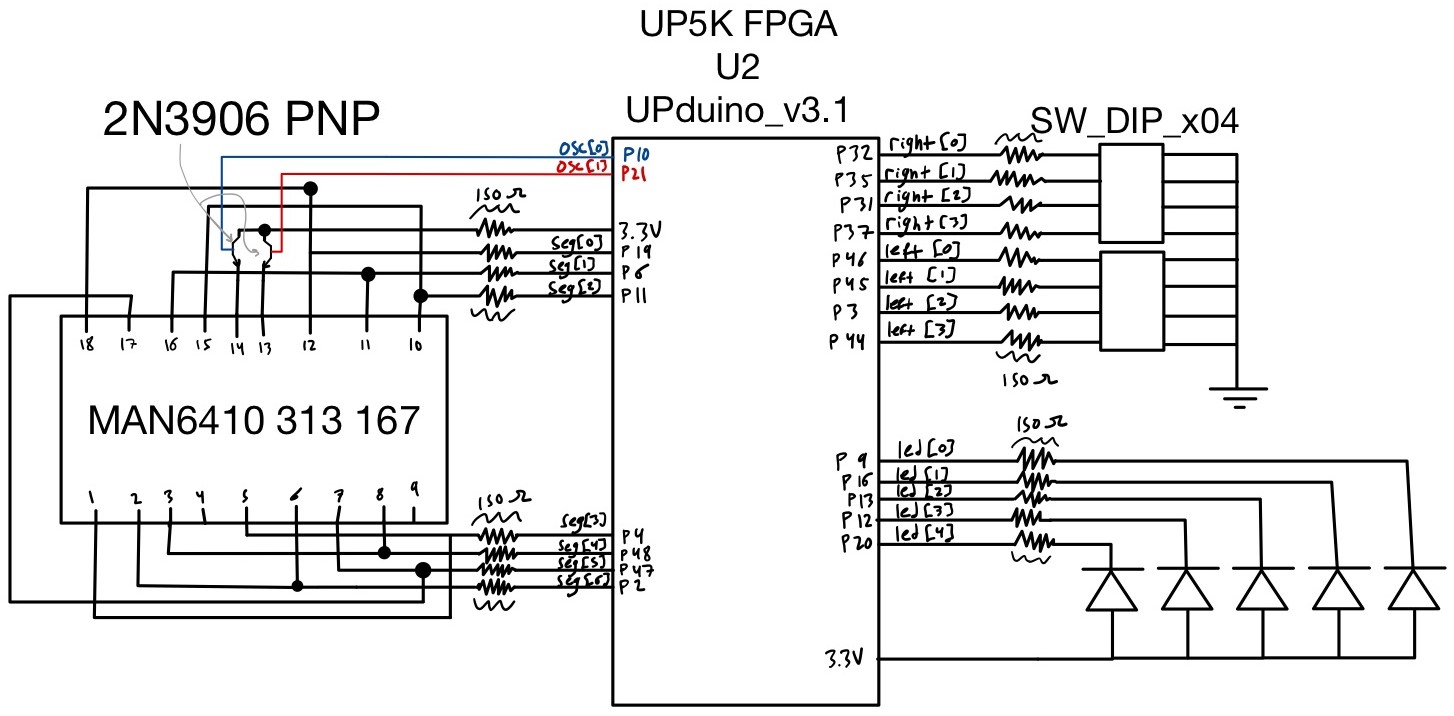 UP5K FPGA
U2
UPduino_v3.1
2N3906 PNP
SW_DIP_x04
osc[0] P10
osc[1] P21
150 Ω
3.3V
seg[0] P19
seg[1] P6
seg[2] P11
18 17 16 15 14 13 12 11 10
MAN6410 313 167
1 2 3 4 5 6 7 8 9
150 Ω
seg[3] P4
seg[4] P48
seg[5] P47
seg[6] P2
P32 right [0]
P35 right [1]
P31 right [2]
P37 right [3]
P46 left [0]
P45 left [1]
P3 left [2]
P44 left [3]
150 Ω
150 Ω
P9 led[0]
P16 led[1]
P13 led[2]
P12 led[3]
P20 led[4]
3.3V